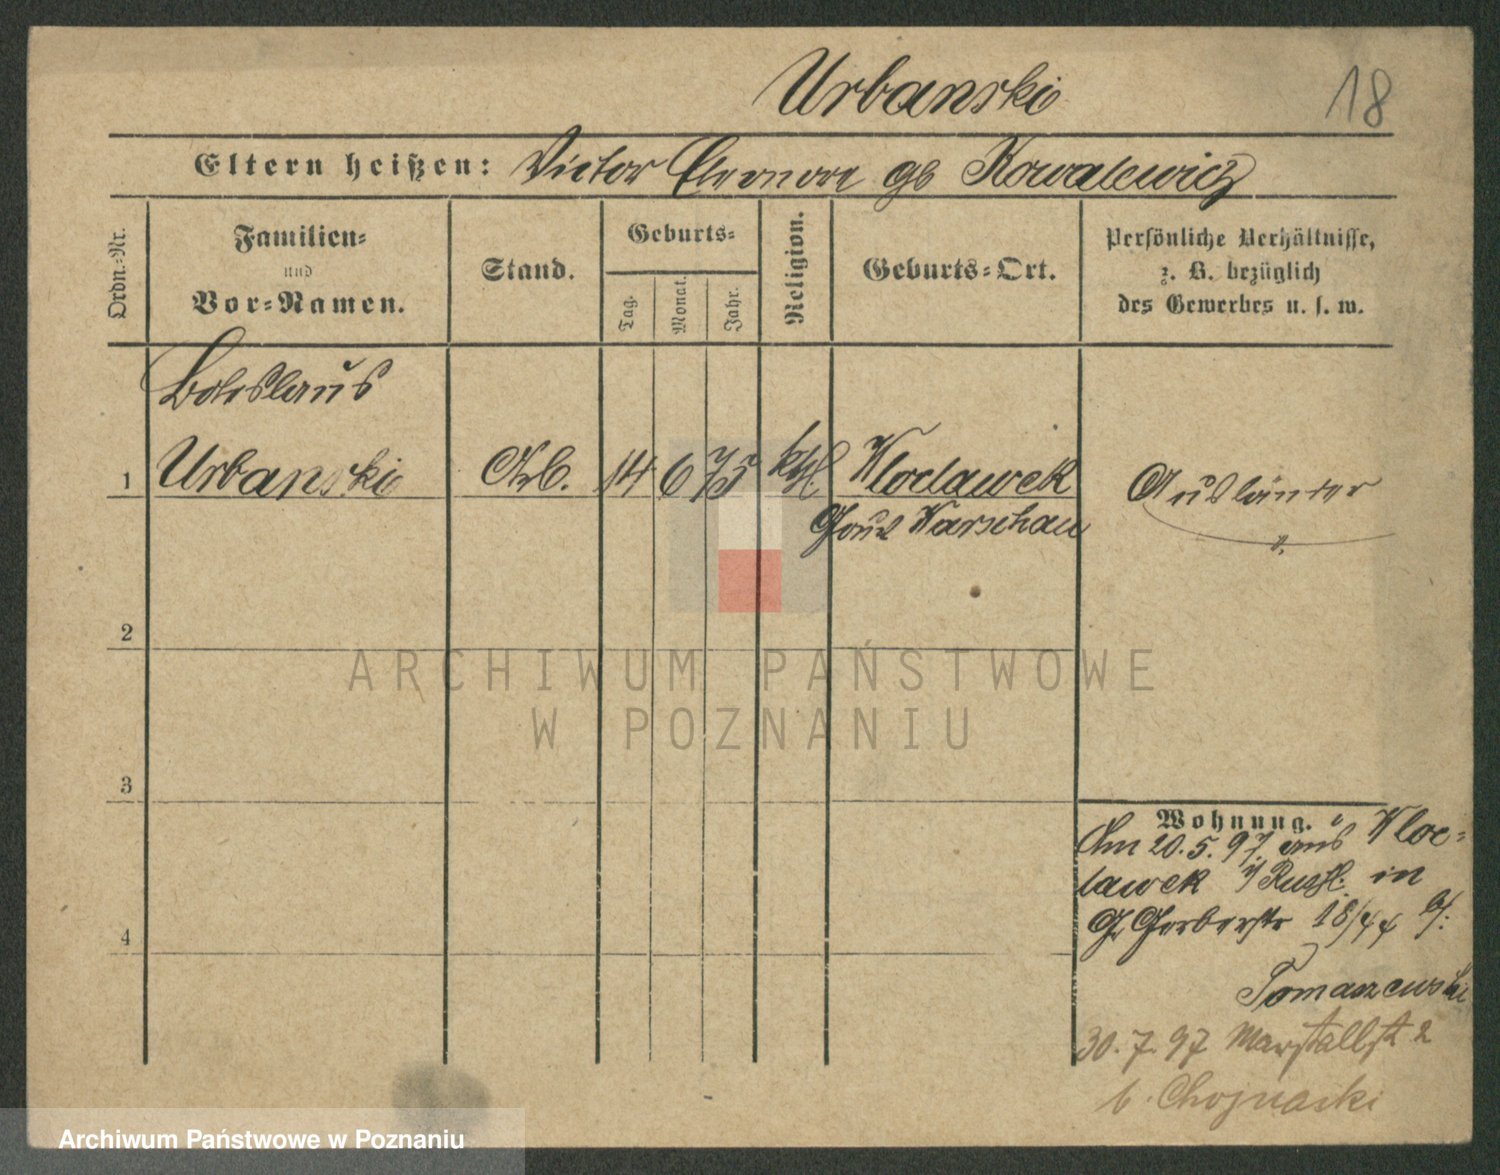 Urbanski
18
Eltern heißen: Victor Eleonore gb Kowalewicz
Ordn.-Nr.
Familien-
und
Vor-Namen.
Stand.
Geburts-
Tag.
Monat.
Jahr.
Religion.
Geburts-Ort.
Persönliche Verhältnisse,
z. B. bezüglich
des Gewerbes u. s. w.
Boleslaus
1 Urbanski Arb. 14 6 75 kth Wloclawek Ausländer
Gouv Warschau
2
ARCHIWUM PAŃSTWOWE
W POZNANIU
3
Wohnung.
Am 20.5.97. aus Kloc-
lawek i/ Russl. in
Gr Gerberstr 18/44 b/:
Tomaszewski
4
30.7.97 Marstallst 2
b. Chojnacki
Archiwum Państwowe w Poznaniu